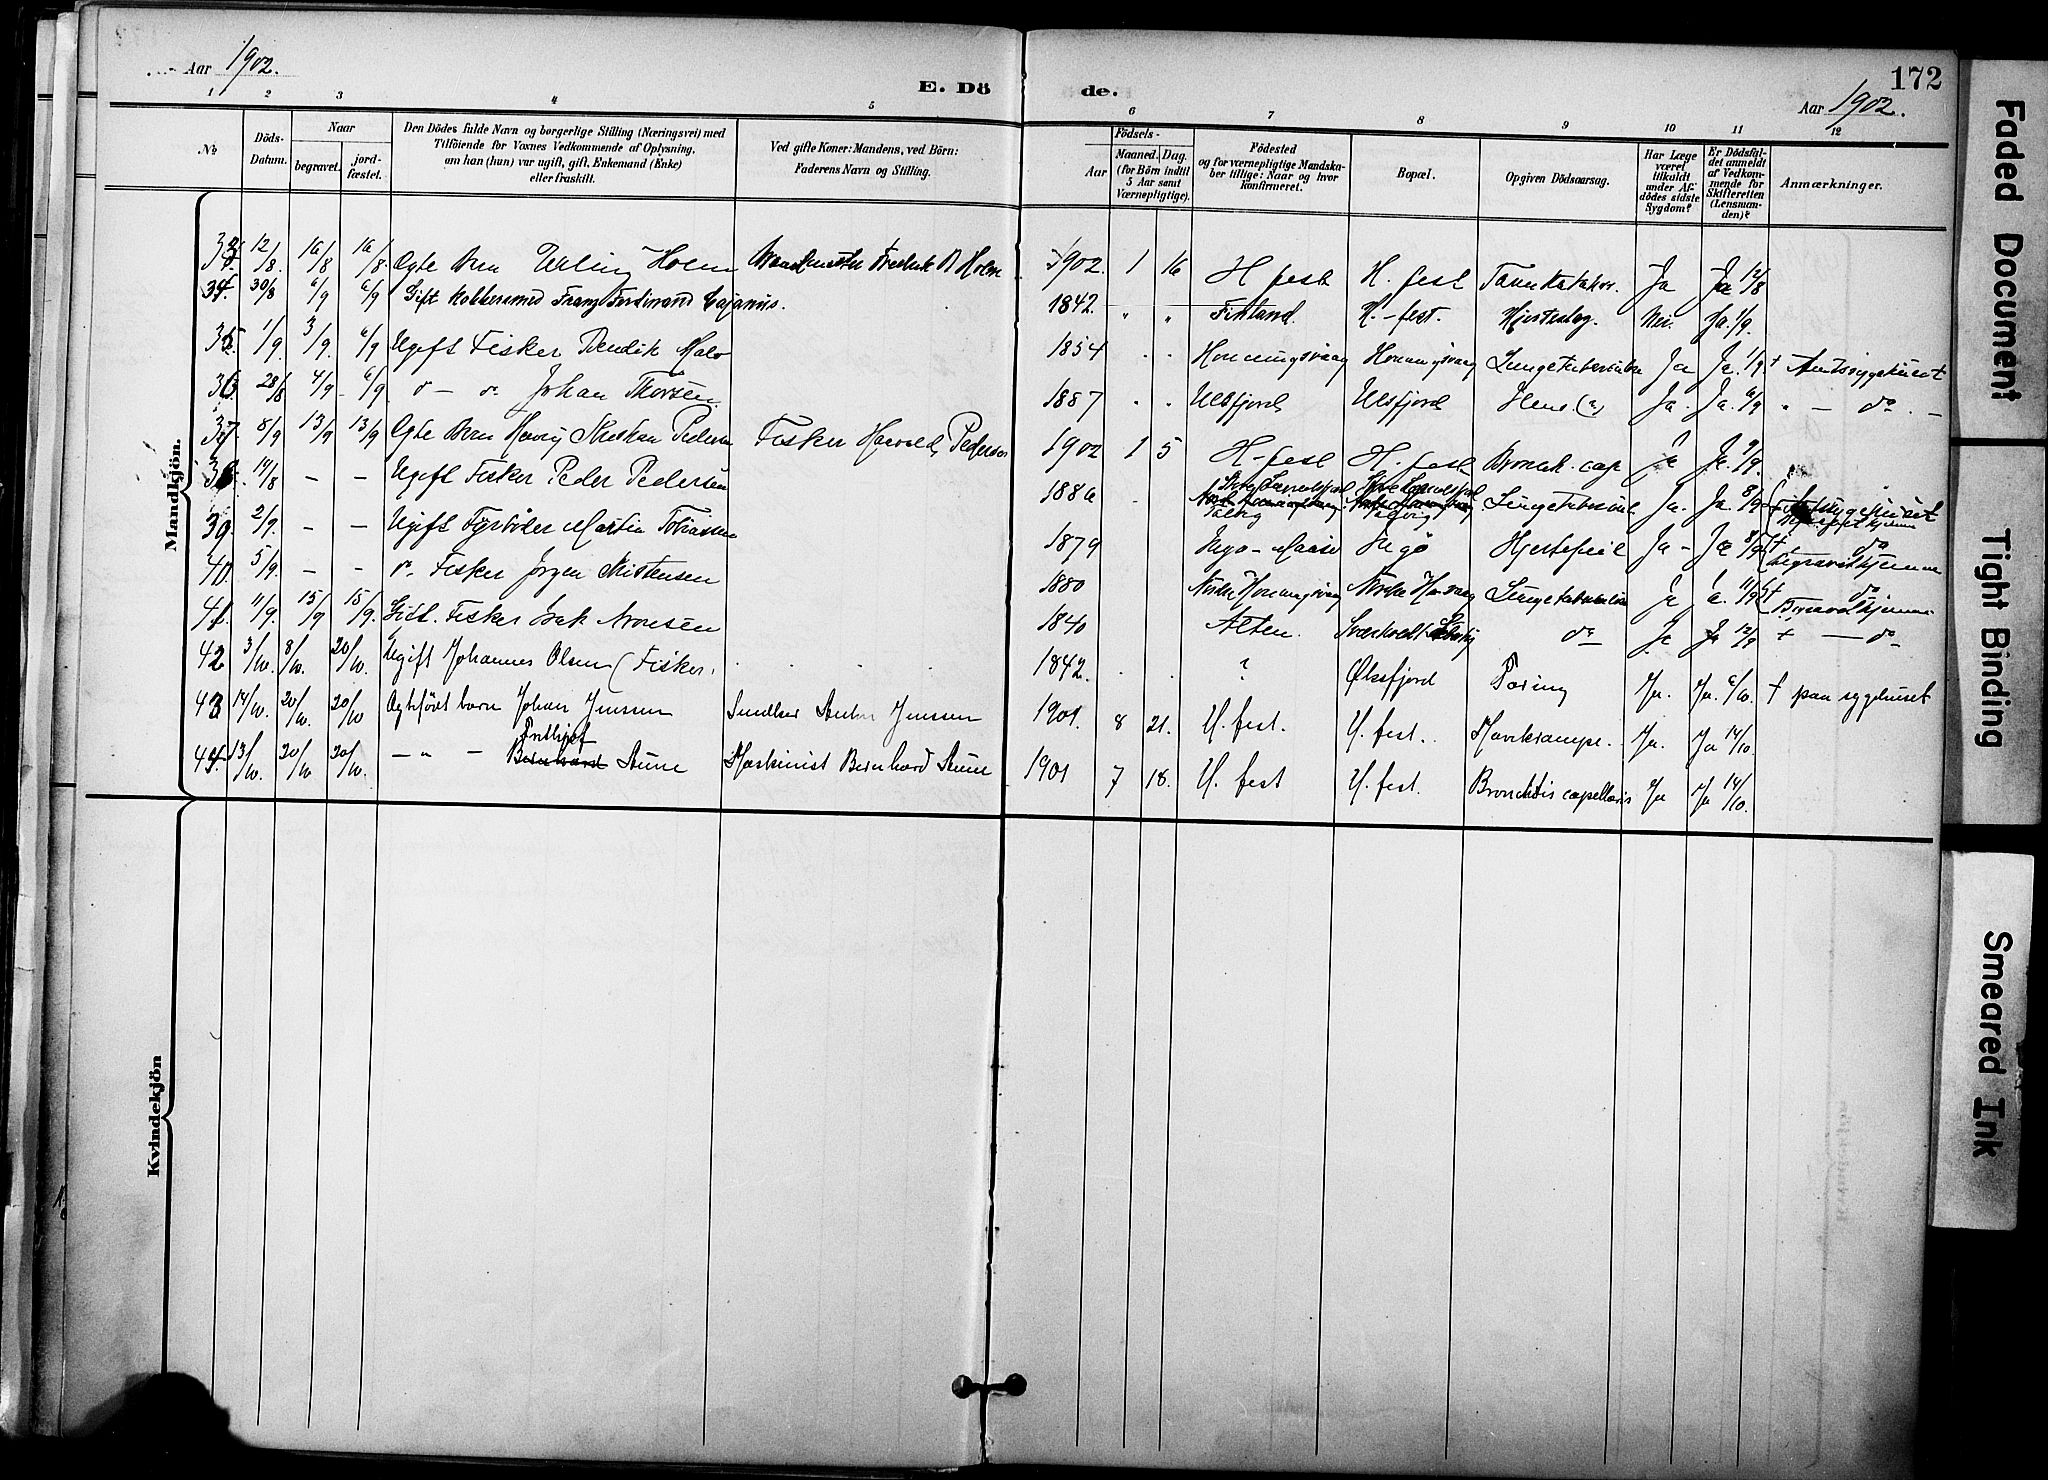 Aar 1902.
E. Döde.
172
Aar 1902.
1 2 3 4 5 6 7 8 9 10 11 12
№
Döds-Datum.
Naar
begravet.
jord-fæstet.
Den Dödes fulde Navn og borgerlige Stilling (Næringsvei) med
Tilföiende for Voxnes Vedkommende af Oplysning,
om han (hun) var ugift, gift, Enkemand (Enke)
eller fraskilt.
Ved gifte Koner: Mandens, ved Börn:
Faderens Navn og Stilling.
Födsels-
Aar
Maaned. Dag.
(for Börn indtil
5 Aar samt
Værnepligtige).
Födested
og for værnepligtige Mandska-
ber tillige: Naar og hvor
konfirmeret.
Bopæl.
Opgiven Dödsaarsag.
Har Læge
været
tilkaldt
under Af-
dödes sidste
Sygdom?
Er Dödsfal-
det anmeldt
af Vedkom-
mende for
Skifteretten
(Lensman-
den)?
Anmærkninger.
Mandkjön.
33. 12/8. 16/8 16/8. Ægte Barn Erling Holm Fredrik Holm 1902. 1 16 H.fest H. fest Ja Ja 12/8
34. 30/8 6/9 6/9 Gift Kobbersmed Franz Ferdinand Cajanus. 1842. " " Finland. H.-fest. Hjerteslag. Nei. Ja. 1/9.
35. 1/9. 3/9. 6/9 Ugift Fisker 1854 " " Honningsvaag Honningsvaag Lungetuberculose Ja Ja. 1/9 + Amtssygehuset
36. 28/8 4/9 6/9. d - o. Johan Thorsen. 1887 " " Ulsfjord Ulsfjord Ja. Ja. 6/9 " — do. —
37. 8/9 13/9 13/9 Ægte Barn Kristian Pedersen Fisker Harald Pedersen 1902 1 5 H-fest H.-fest Bronch. cap Ja Ja. 9/9.
38. 14/8 - - Ugift Fisker Peder Pedersen 1886 . Talvig Talvig Lungetubercul Ja. Ja. 8/9 Amtssygehuset
39. 2/9. - - Ugift Fyrböter Martin Tobiassen 1879 Ingö - Maasö Ingö Hjertefeil Ja - Ja 8/9 + do begravet hjemme
40. 5/9. - - do. Fisker Jörgen Kristensen 1880 Nordre Honningsvaag Lungetuberculose Ja Ja. 11/9 + do Begravet hjemme
41. 11/9. 15/9 15/9. Gift. Fisker Isak Aronsen 1840 Alten. do Ja Ja 12/9 + — do
42 3/10. 8/10. 20/10. Ugift Johannes Olsen (Fisker. 1842. . . ? Ölsfjord Ja. Ja. 6/10. + paa sygehuset
43 14/10. 20/10. 20/10 Ægtefödt barn Johan Jenssen Snedker Jenssen 1901. 8 21. H. fest. H. fest. Ja. Ja 14/10.
44. 13/10. 20/10 20/10. — " — Frithjof Bernhard Aune Maskinist Bernhard Aune 1901 7 18. H. fest H. fest. Bronchitis capellaris Ja Ja 14/10.
Kvindekjön
Faded Document
Tight Binding
Smeared Ink